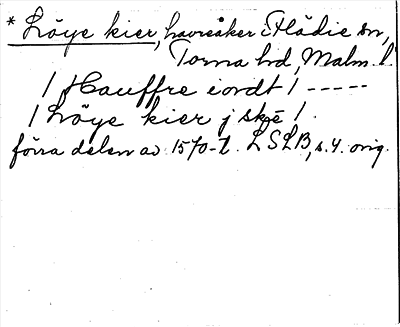 * Löye kier, havreåker i Flädie sn,
Torna hd, Malm. l.
/ Hauffre iordt / -----
/ Löye kier j skē /.
förra delen av 1570-t. LSLB, s. 4. orig.